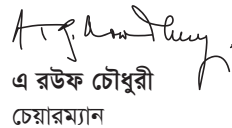 এ রউফ চৌধুরী
চেয়ারম্যান